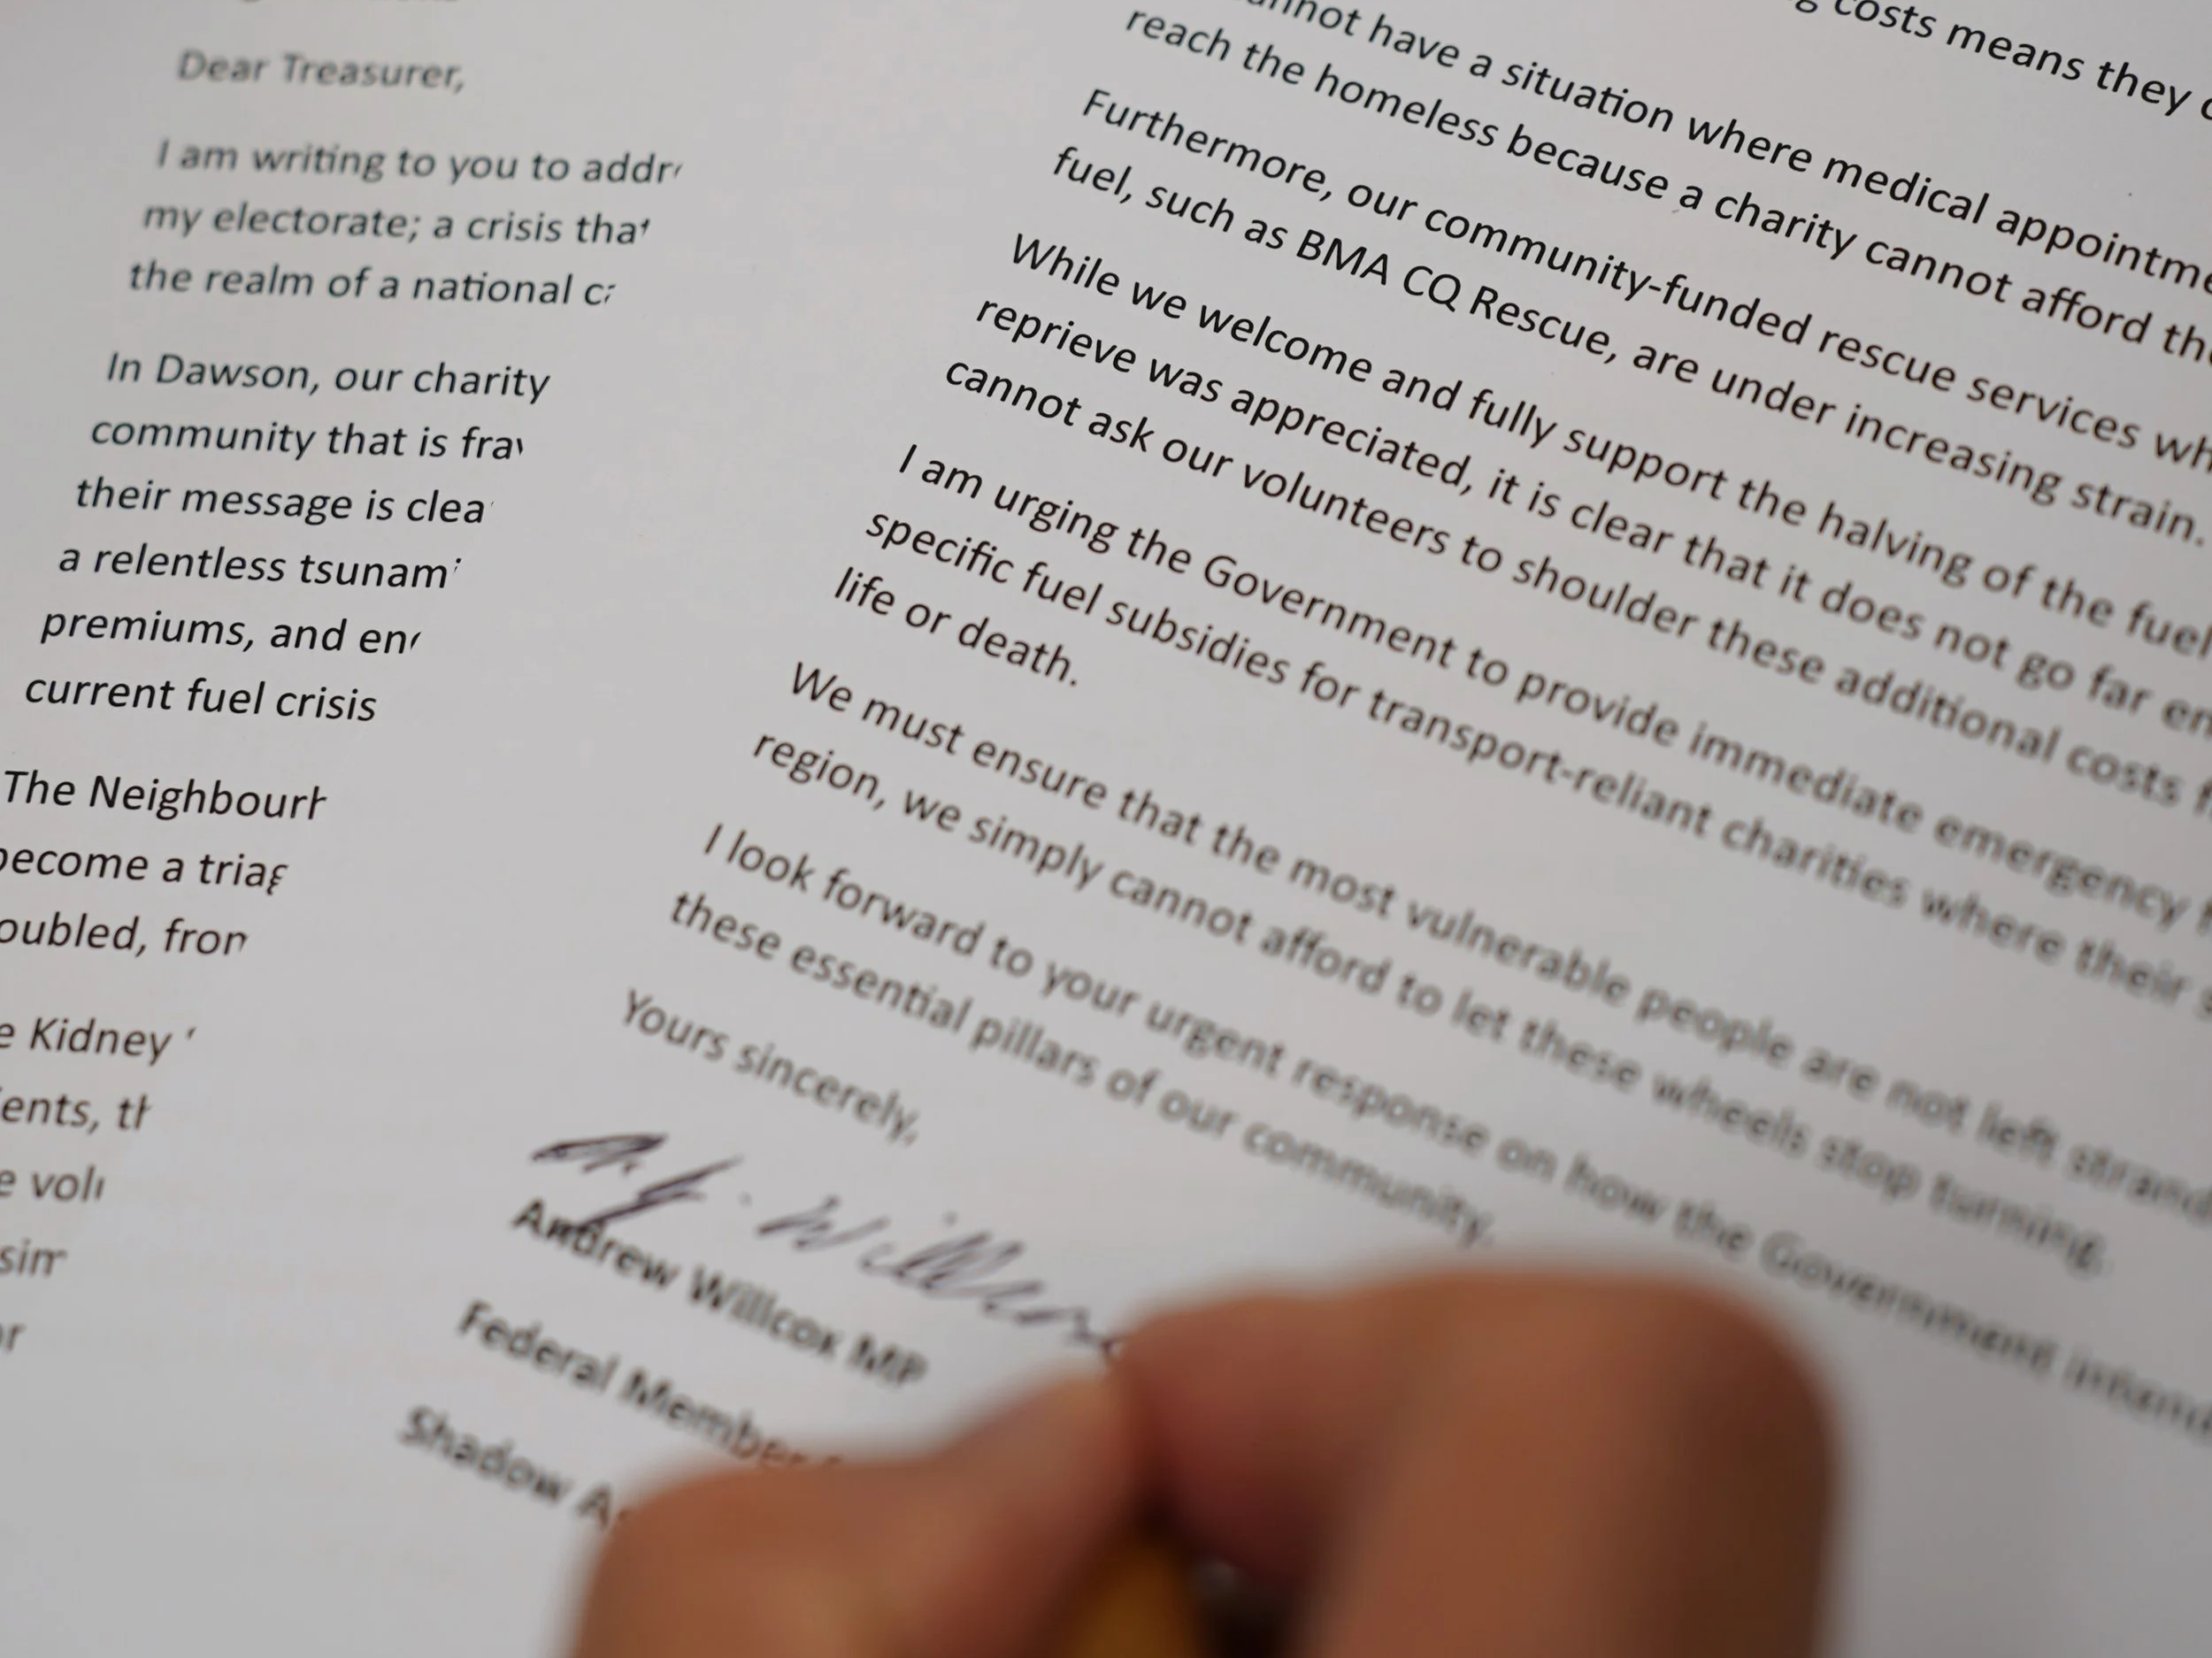 Dear Treasurer,
I am writing to you to
my electorate; a crisis that
the realm of a national
In Dawson, our charity
community that is
their message is
a relentless
premiums, and
current fuel crisis
The
become a
e Kidney
costs means they
have a situation where medical
reach the homeless because a charity cannot afford
Furthermore, our community-funded rescue services
fuel, such as BMA CQ Rescue, are under increasing strain.
While we welcome and fully support the halving of the fuel
reprieve was appreciated, it is clear that it does not go far
cannot ask our volunteers to shoulder these additional costs
I am urging the Government to provide immediate emergency
specific fuel subsidies for transport-reliant charities where their
life or death.
We must ensure that the most vulnerable people are not left
region, we simply cannot afford to let these wheels stop turning.
I look forward to your urgent response on how the Government
these essential pillars of our community.
Yours sincerely,
Andrew Willcox MP
Federal Member
Shadow